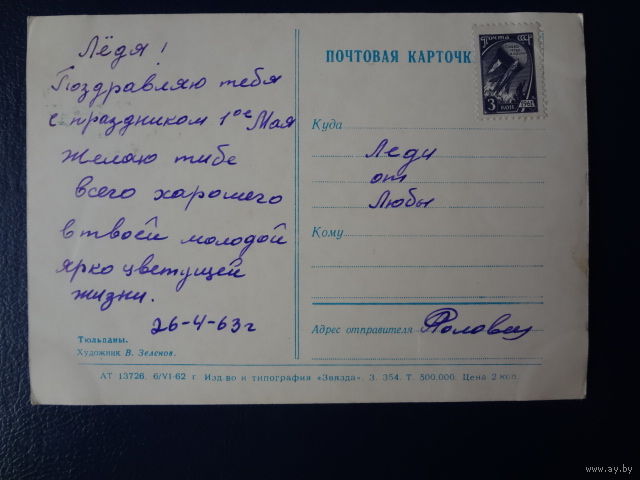 Лёдя!
Поздравляю тебя
с праздником 1ое Мая
Желаю тибе
всего харошего
в твоей молодой
ярко цветущей
жизни.
26-4-63 г
Тюльпаны.
Художник В. Зеленов.
ПОЧТОВАЯ КАРТОЧК
Почта СССР
3 коп
1961
Куда
Леди
от
Любы
Кому
Адрес отправителя
АТ 13726. 6/VI-62 г. Изд-во и типография «Звязда». З. 354. Т. 500.000. Цена 2 коп.
www.ay.by